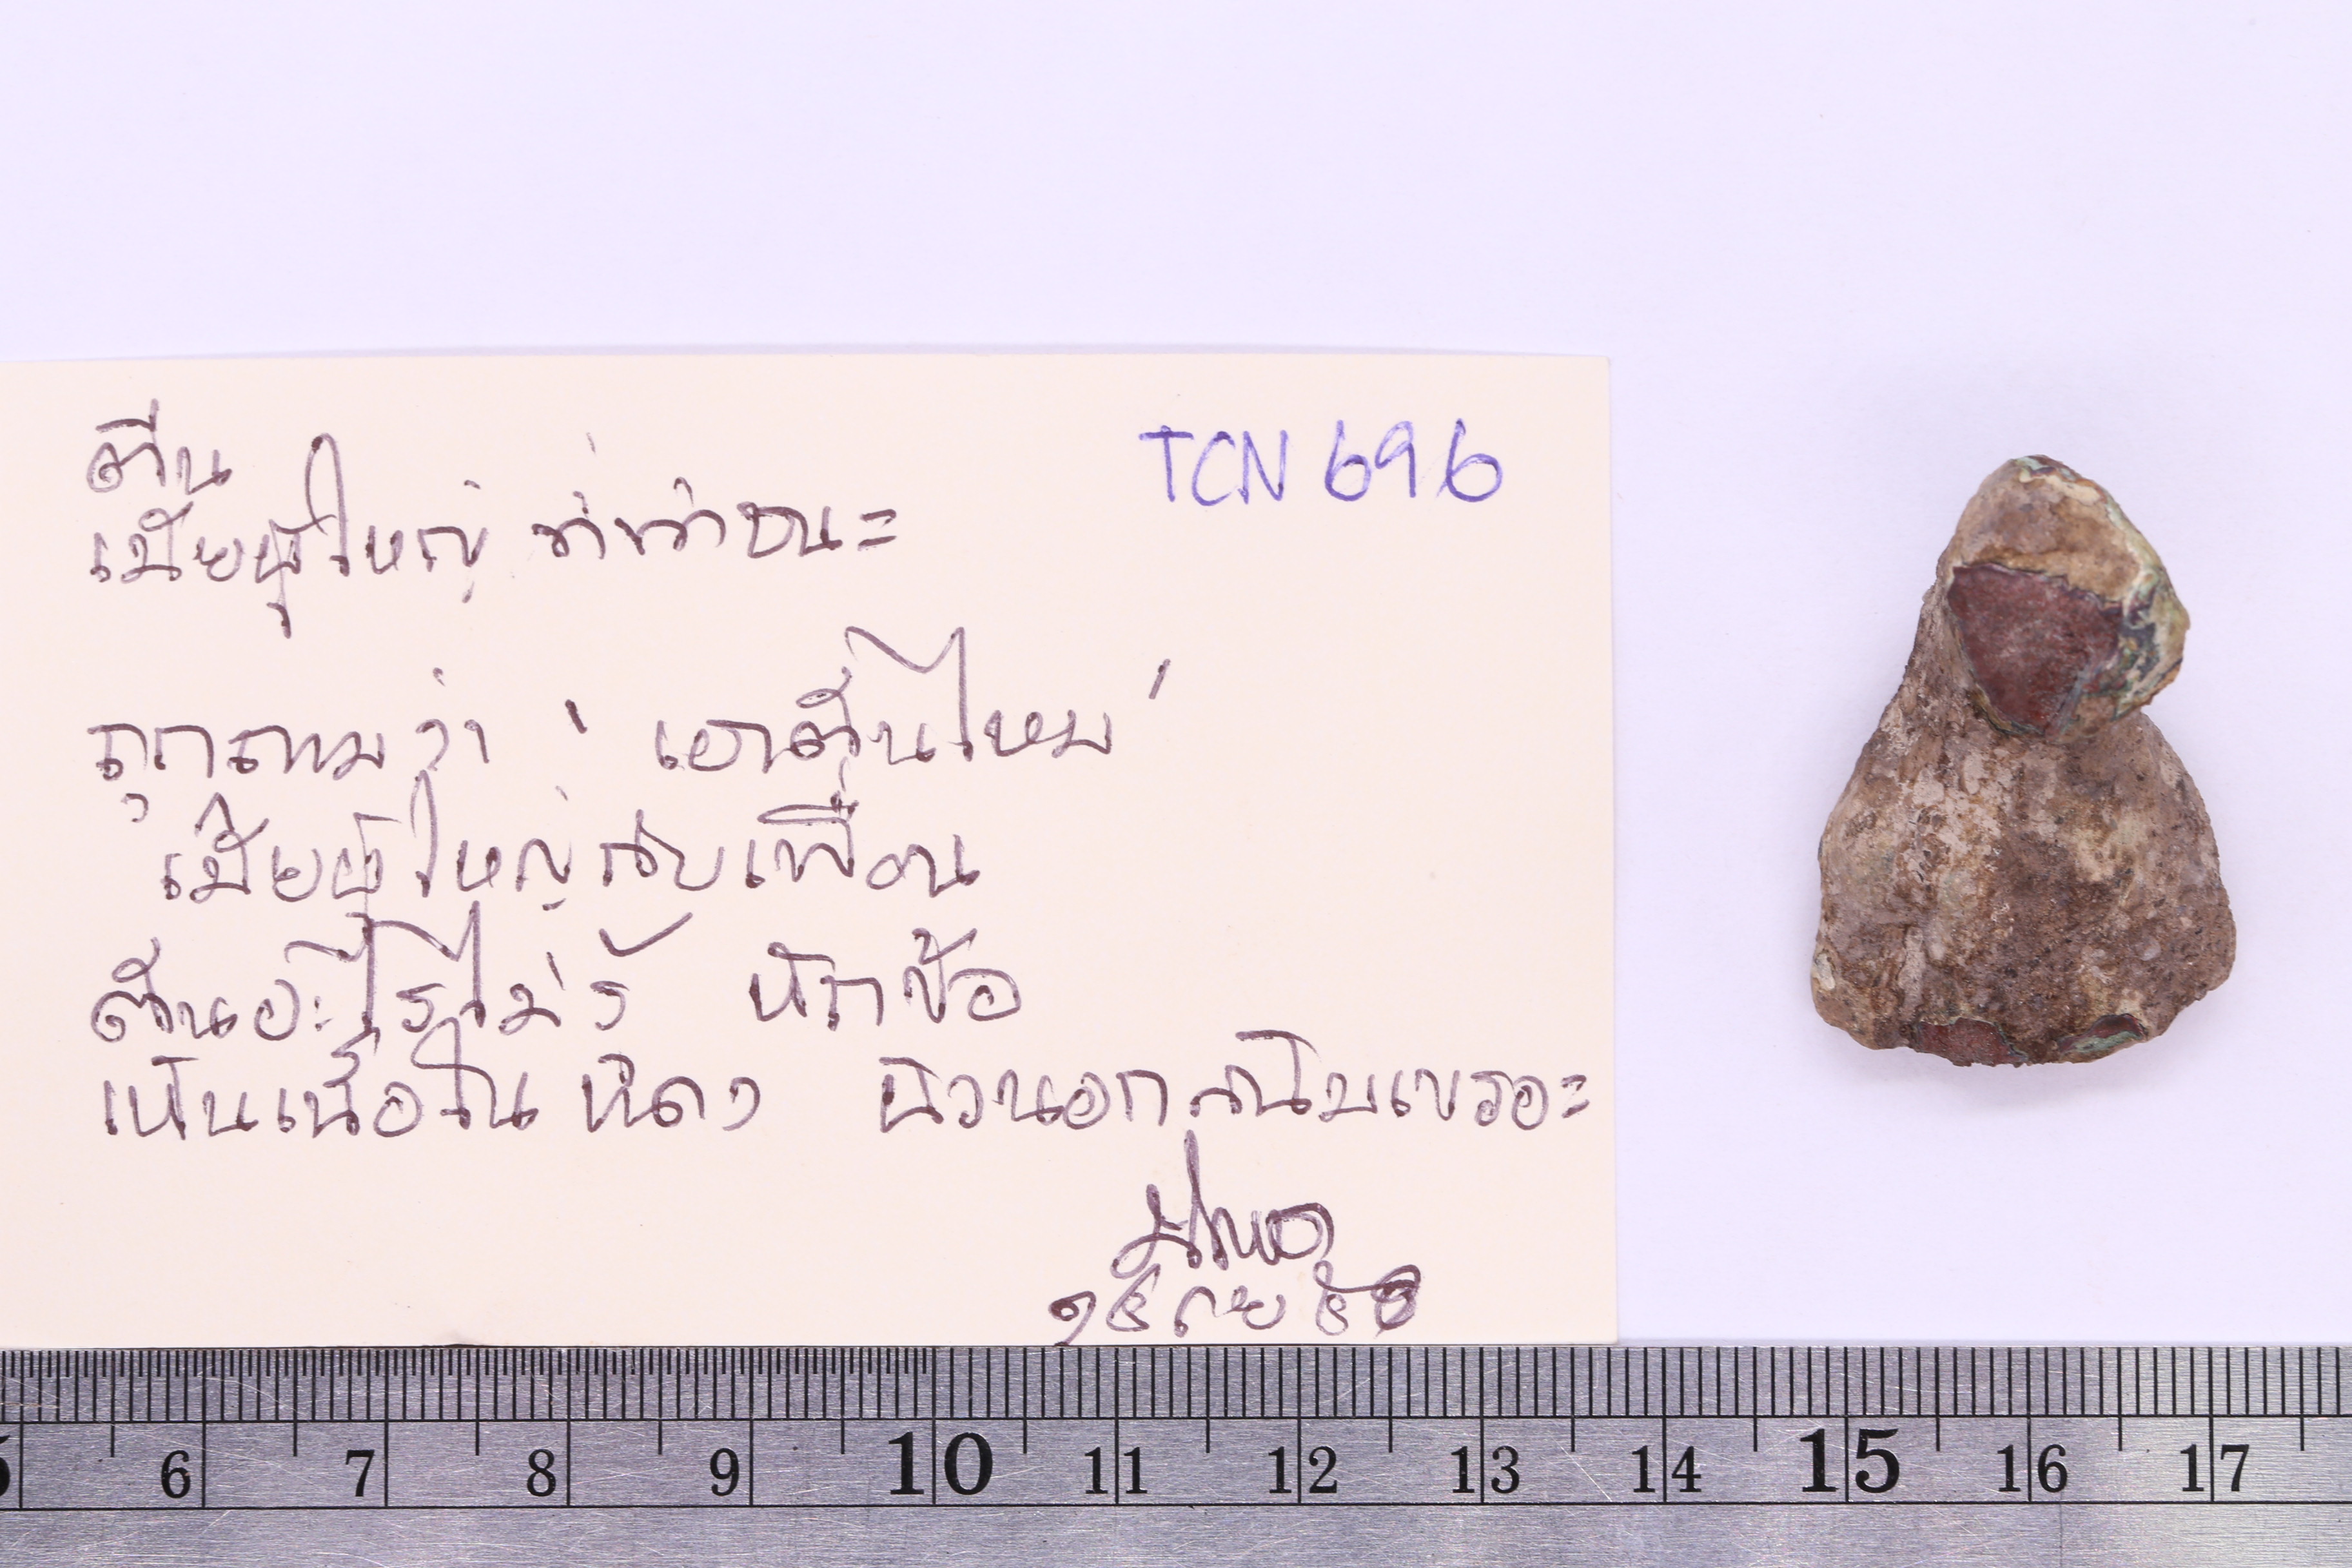 ตีน
TCN 696
เมียผู้ใหญ่ ท่าว่าชนะ
ถูกถามว่า ' เอาตีนไหม '
เมียผู้ใหญ่กับเพื่อน
ตีนอะไรไม่รู้ หักข้อ
เห็นเนื้อใน สีแดง ผิวนอกสนิมเขรอะ
กย
5 6 7 8 9 10 11 12 13 14 15 16 17